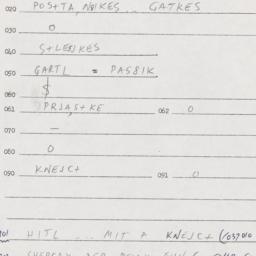 020 POS+TA, NOIKES .. GATKES
030 O
040 S+LENKES
050 GARTL = PASSIK
060 $
061 PRJAS+KE 062 O
070 —
080 O
090 KNEJC+ 091 O
HITL ... MIT A KNEJC+ (/037010